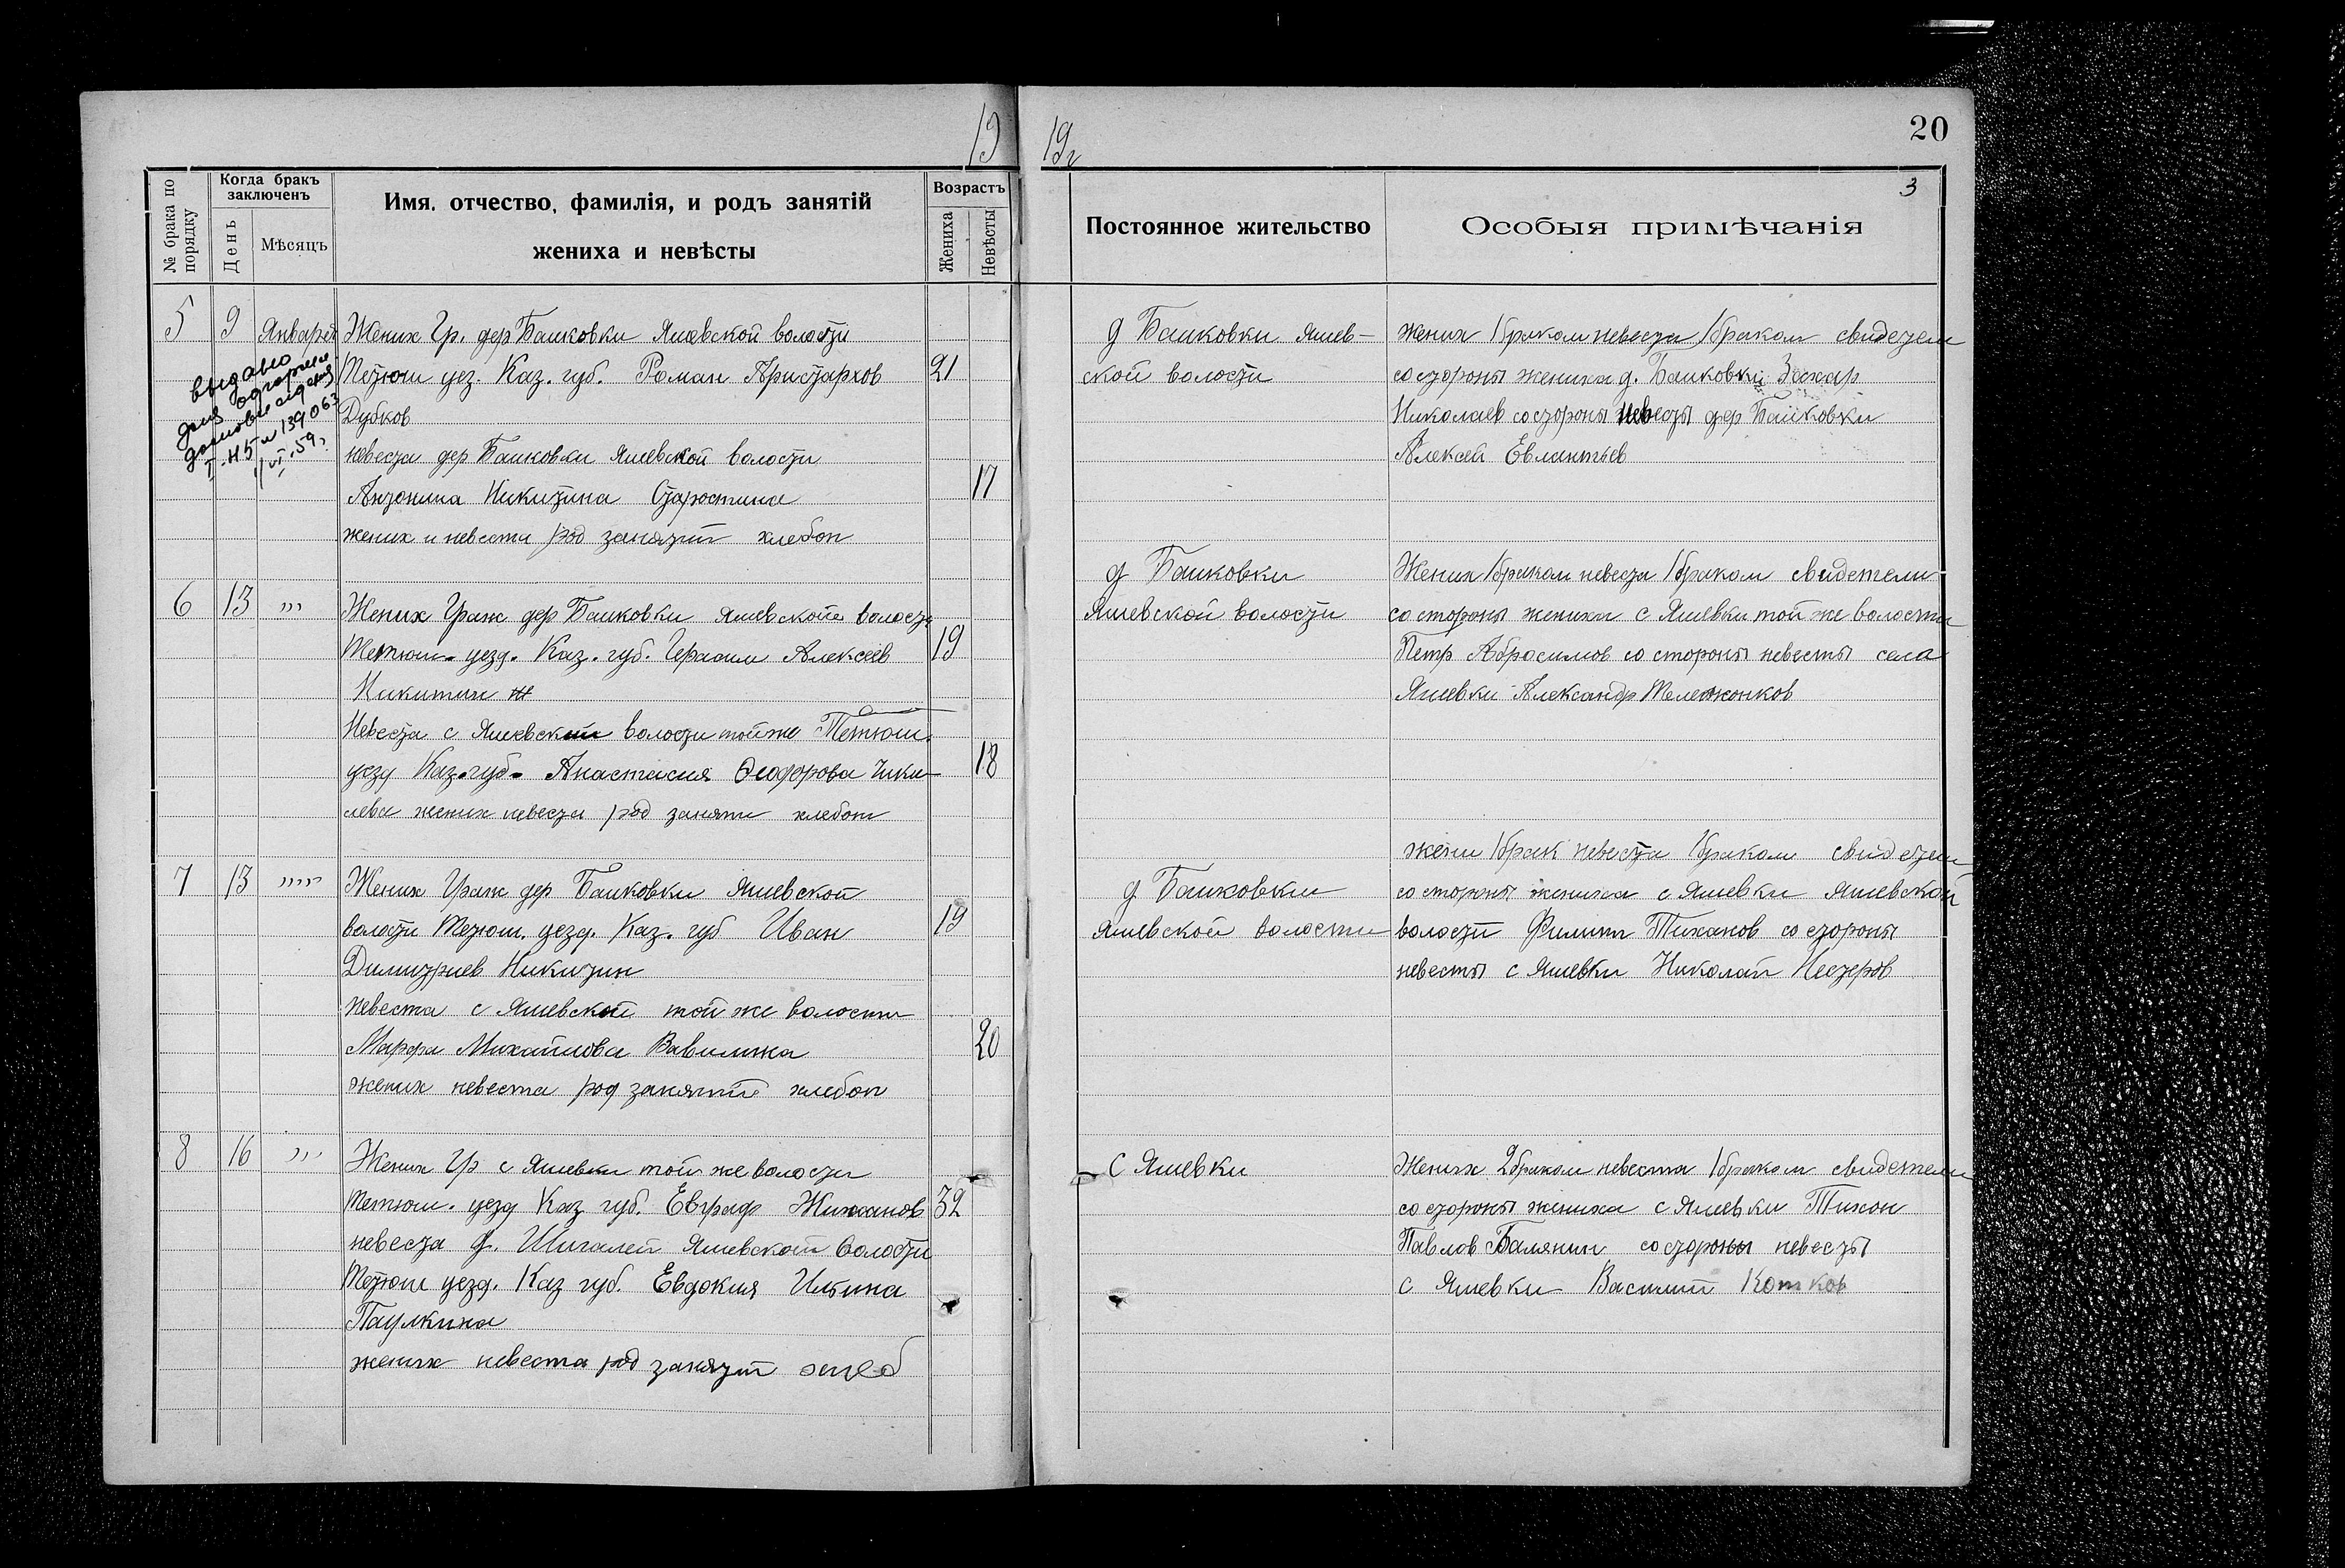 19
19г
20
3
№ брака по порядку
Когда бракъ заключенъ
День
Мѣсяцъ
Имя, отчество, фамилія, и родъ занятій
жениха и невѣсты
Возрастъ
Жениха
Невѣсты
Постоянное жительство
Особыя примѣчанія
5 9 Января Жених Гр. дер Башковки Яшевской волости
Тетюш уез. Каз. губ. Роман Аристархов 21
Дубков
невеста дер Башковки Яшевской волости
Антонина Никитина Старостина 17
жених и невеста род занятий хлебоп
выдано
139063
VI.59г
д Башковки Яшев-
ской волости
жених 1 браком невеста 1 браком свидетели
со стороны жениха д. Башковки Захар
Николаев со стороны невесты дер Башковки
Алексей Евлантьев
6 13 "" Жених Граж дер Башковки Яшевской волости
Тетюш. уезд. Каз. губ. Герасим Алексеев 19
Никитин
Невеста с Яшевской волости той же Тетюш.
уезд Каз. губ. Анастасия Феодорова Чики- 18
лева жених невеста род заняти хлебоп
д Башковки
Яшевской волости
Жених 1 браком невеста 1 браком свидетели
со стороны жениха с Яшевки той же волости
Петр Абросимов со стороны невесты села
Яшевки Александр Тележонков
7 13 "" Жених Граж дер Башковки Яшевской
волости Тетюш. уезд. Каз. губ Иван 19
Димитриев Никитин
невеста с Яшевской той же волости
Марфа Михайлова Вавилина 20
жених невеста род занятий хлебоп
д Башковки
Яшевской волости
жени 1 брак невеста 1 браком свидетели
со стороны жениха с Яшевки Яшевской
волости Филипп Тиханов со стороны
невесты с Яшевки Николай Нестеров
8 16 "" Жених Гр с Яшевки той же волости
Тетюш. уезд Каз губ. Евграф Жижанов 32
невеста д. Шигалей Яшевской волости
Тетюш уезд. Каз губ. Евдокия Ильина
Паулкина
жених невеста род занятий хлеб
с Яшевки
Жених 2 браком невеста 1 браком свидетели
со стороны жениха с Яшевки Тихон
Павлов Балянин со стороны невесты
с Яшевки Василий Котков